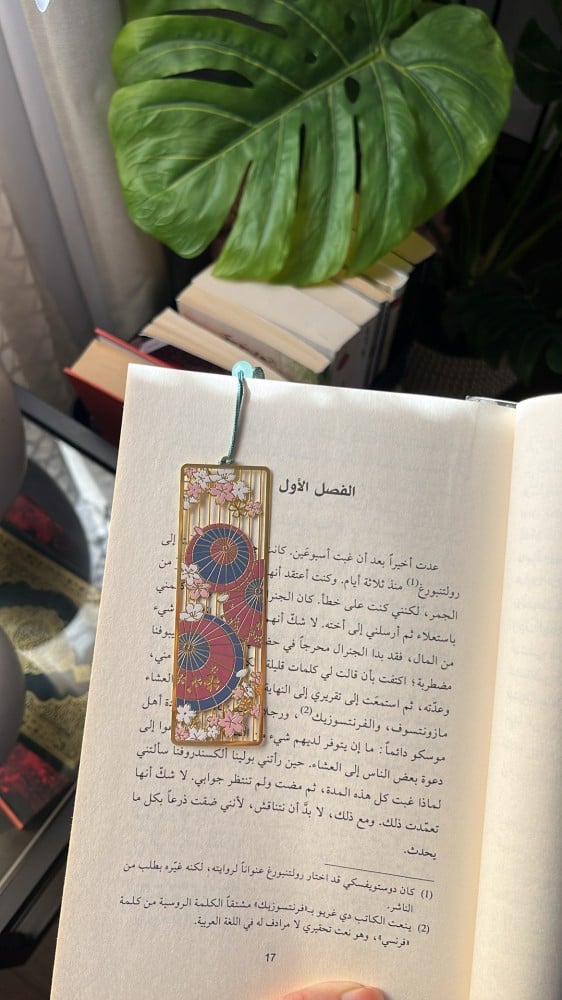 الفصل الأول
عدت أخيراً بعد أن غبت أسبوعَين. كانت إلى
رولتنبورغ(1) منذ ثلاثة أيام. وكنت أعتقد أنهم من
الجمر، لكنني كنت على خطأ. كان الجنرال
باستعلاء ثم أرسلني إلى أخته. لا شكّ أنهم شيء
من المال، فقد بدا الجنرال محرجاً في
مضطربة؛ اكتفت بأن قالت لي كلمات قليلة مني،
وعدّته، ثم استمعَت إلى تقريري إلى النهاية العشاء
مازونتسوف، والفرنتسوزيك(2)، أهل
موسكو دائماً: ما إن يتوفر لديهم شيء إلى
دعوة بعض الناس إلى العشاء. حين رأتني بولينا ألكسندروفنا سألتني
لماذا غبت كل هذه المدة، ثم مضت ولم تنتظر جوابي. لا شكّ أنها
تعمّدت ذلك. ومع ذلك، لا بدَّ أن نتناقش، لأنني ضقت ذرعاً بكل ما
يحدث.
(1) كان دوستويفسكي قد اختار رولتنبورغ عنواناً لروايته، لكنه غيّره بطلب من
الناشر.
(2) ينعت الكاتب دي غريو بـ«فرنتسوزيك» مشتقاً الكلمة الروسية من كلمة
«فرنسي»، وهو نعت تحقيري لا مرادف له في اللغة العربية.
17